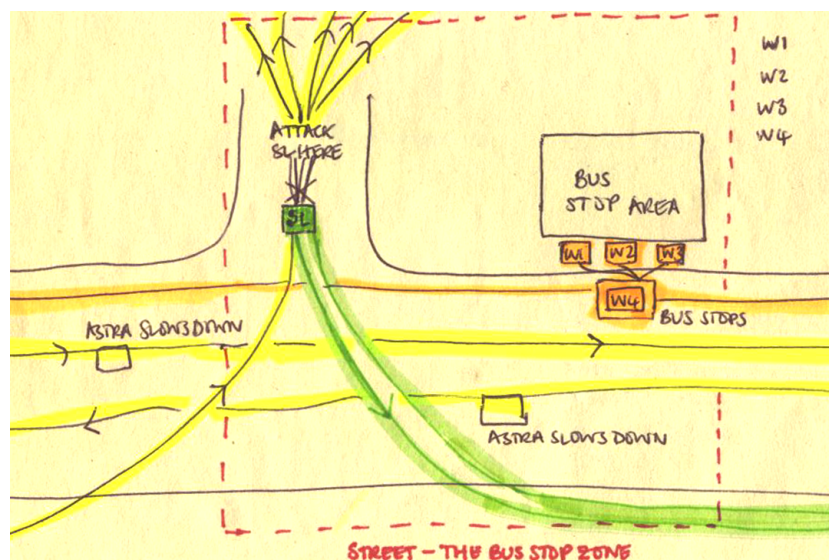 W1
W2
W3
W4
ATTACK
SL HERE
SL
BUS
STOP AREA
W1 W2 W3
W4
BUS STOPS
ASTRA SLOWS DOWN
ASTRA SLOWS DOWN
STREET - THE BUS STOP ZONE